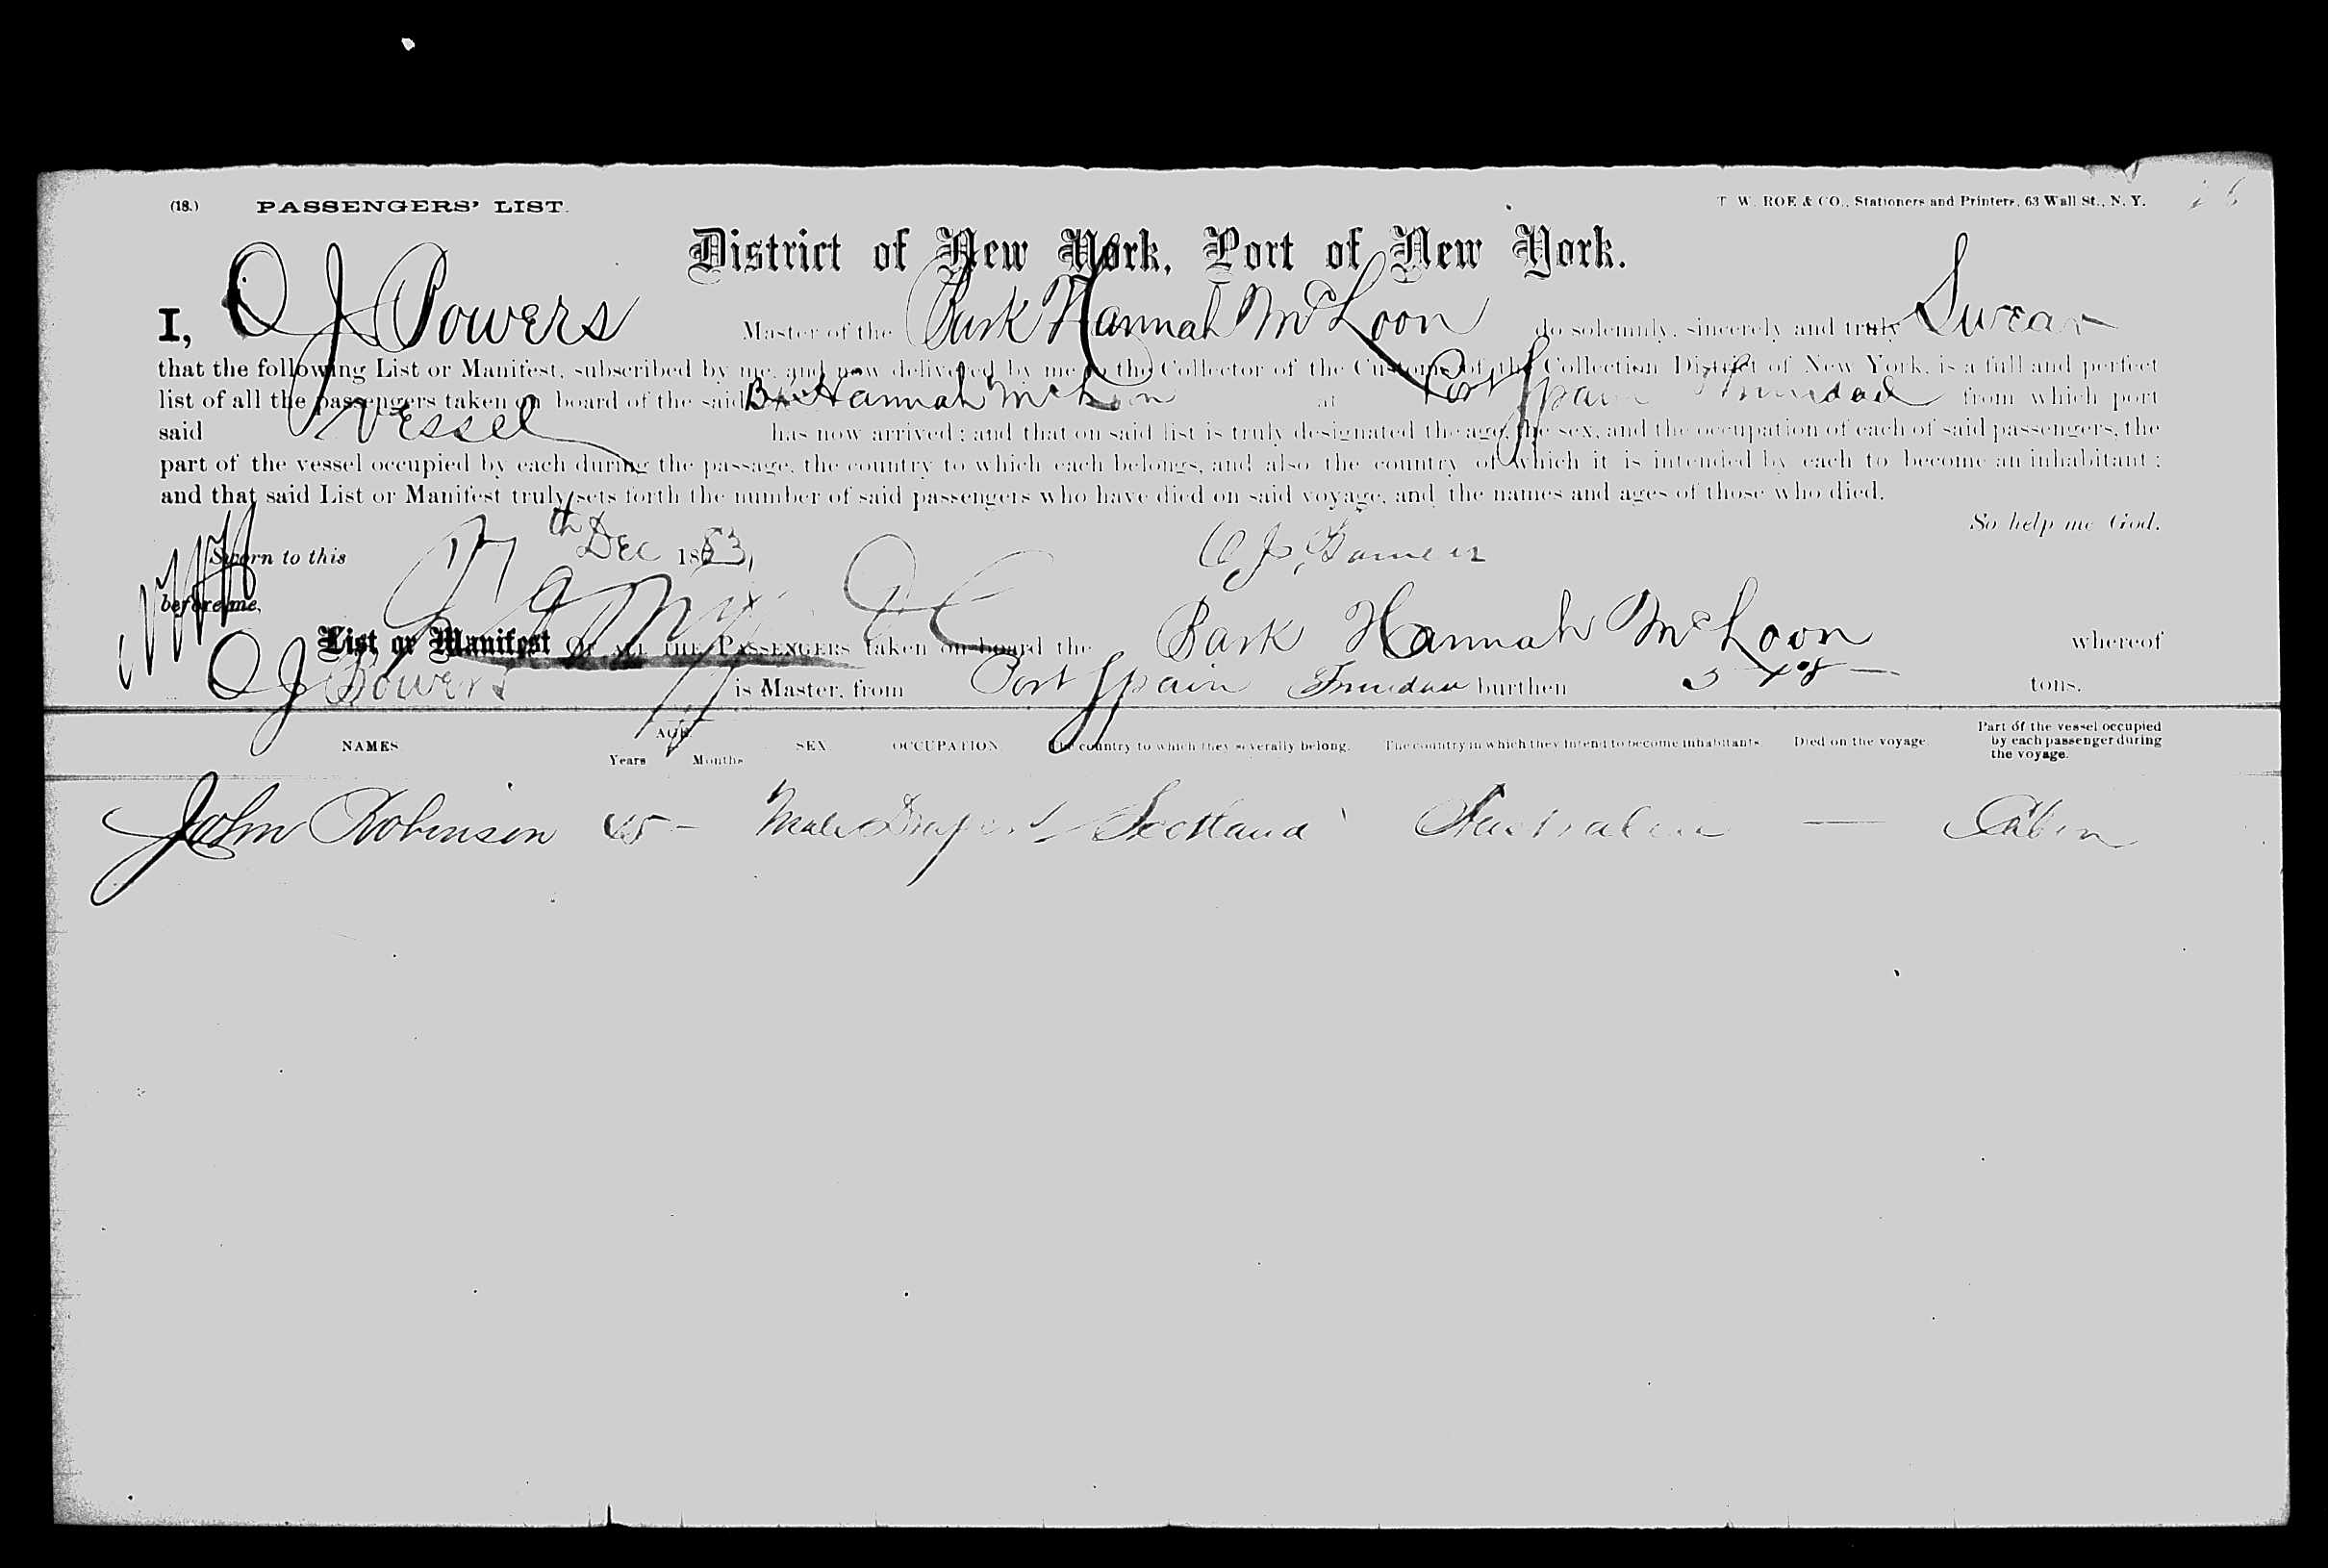 (18.) PASSENGERS' LIST. T. W. ROE & CO., Stationers and Printers, 63 Wall St., N. Y.
District of New York, Port of New York.
I, O J Powers Master of the Bark Hannah McLoon do solemnly, sincerely and truly Swear
that the following List or Manifest, subscribed by me, and now delivered by me to the Collector of the Customs of the Collection District of New York, is a full and perfect
list of all the passengers taken on board of the said Bk Hannah McLoon at Port Spain Trinidad from which port
said Vessel has now arrived; and that on said list is truly designated the age, the sex, and the occupation of each of said passengers, the
part of the vessel occupied by each during the passage, the country to which each belongs, and also the country of which it is intended by each to become an inhabitant;
and that said List or Manifest truly sets forth the number of said passengers who have died on said voyage, and the names and ages of those who died.
So help me God.
Sworn to this 17th Dec 1883,
before me,
List or Manifest OF ALL THE PASSENGERS taken on board the Bark Hannah McLoon whereof
O J Powers is Master, from Port Spain Trinidad burthen 548 tons.
NAMES AGE Years Months SEX OCCUPATION The country to which they severally belong. The country in which they intend to become inhabitants Died on the voyage Part of the vessel occupied by each passenger during the voyage.
John Robinson — Male Scotland Australia — Cabin